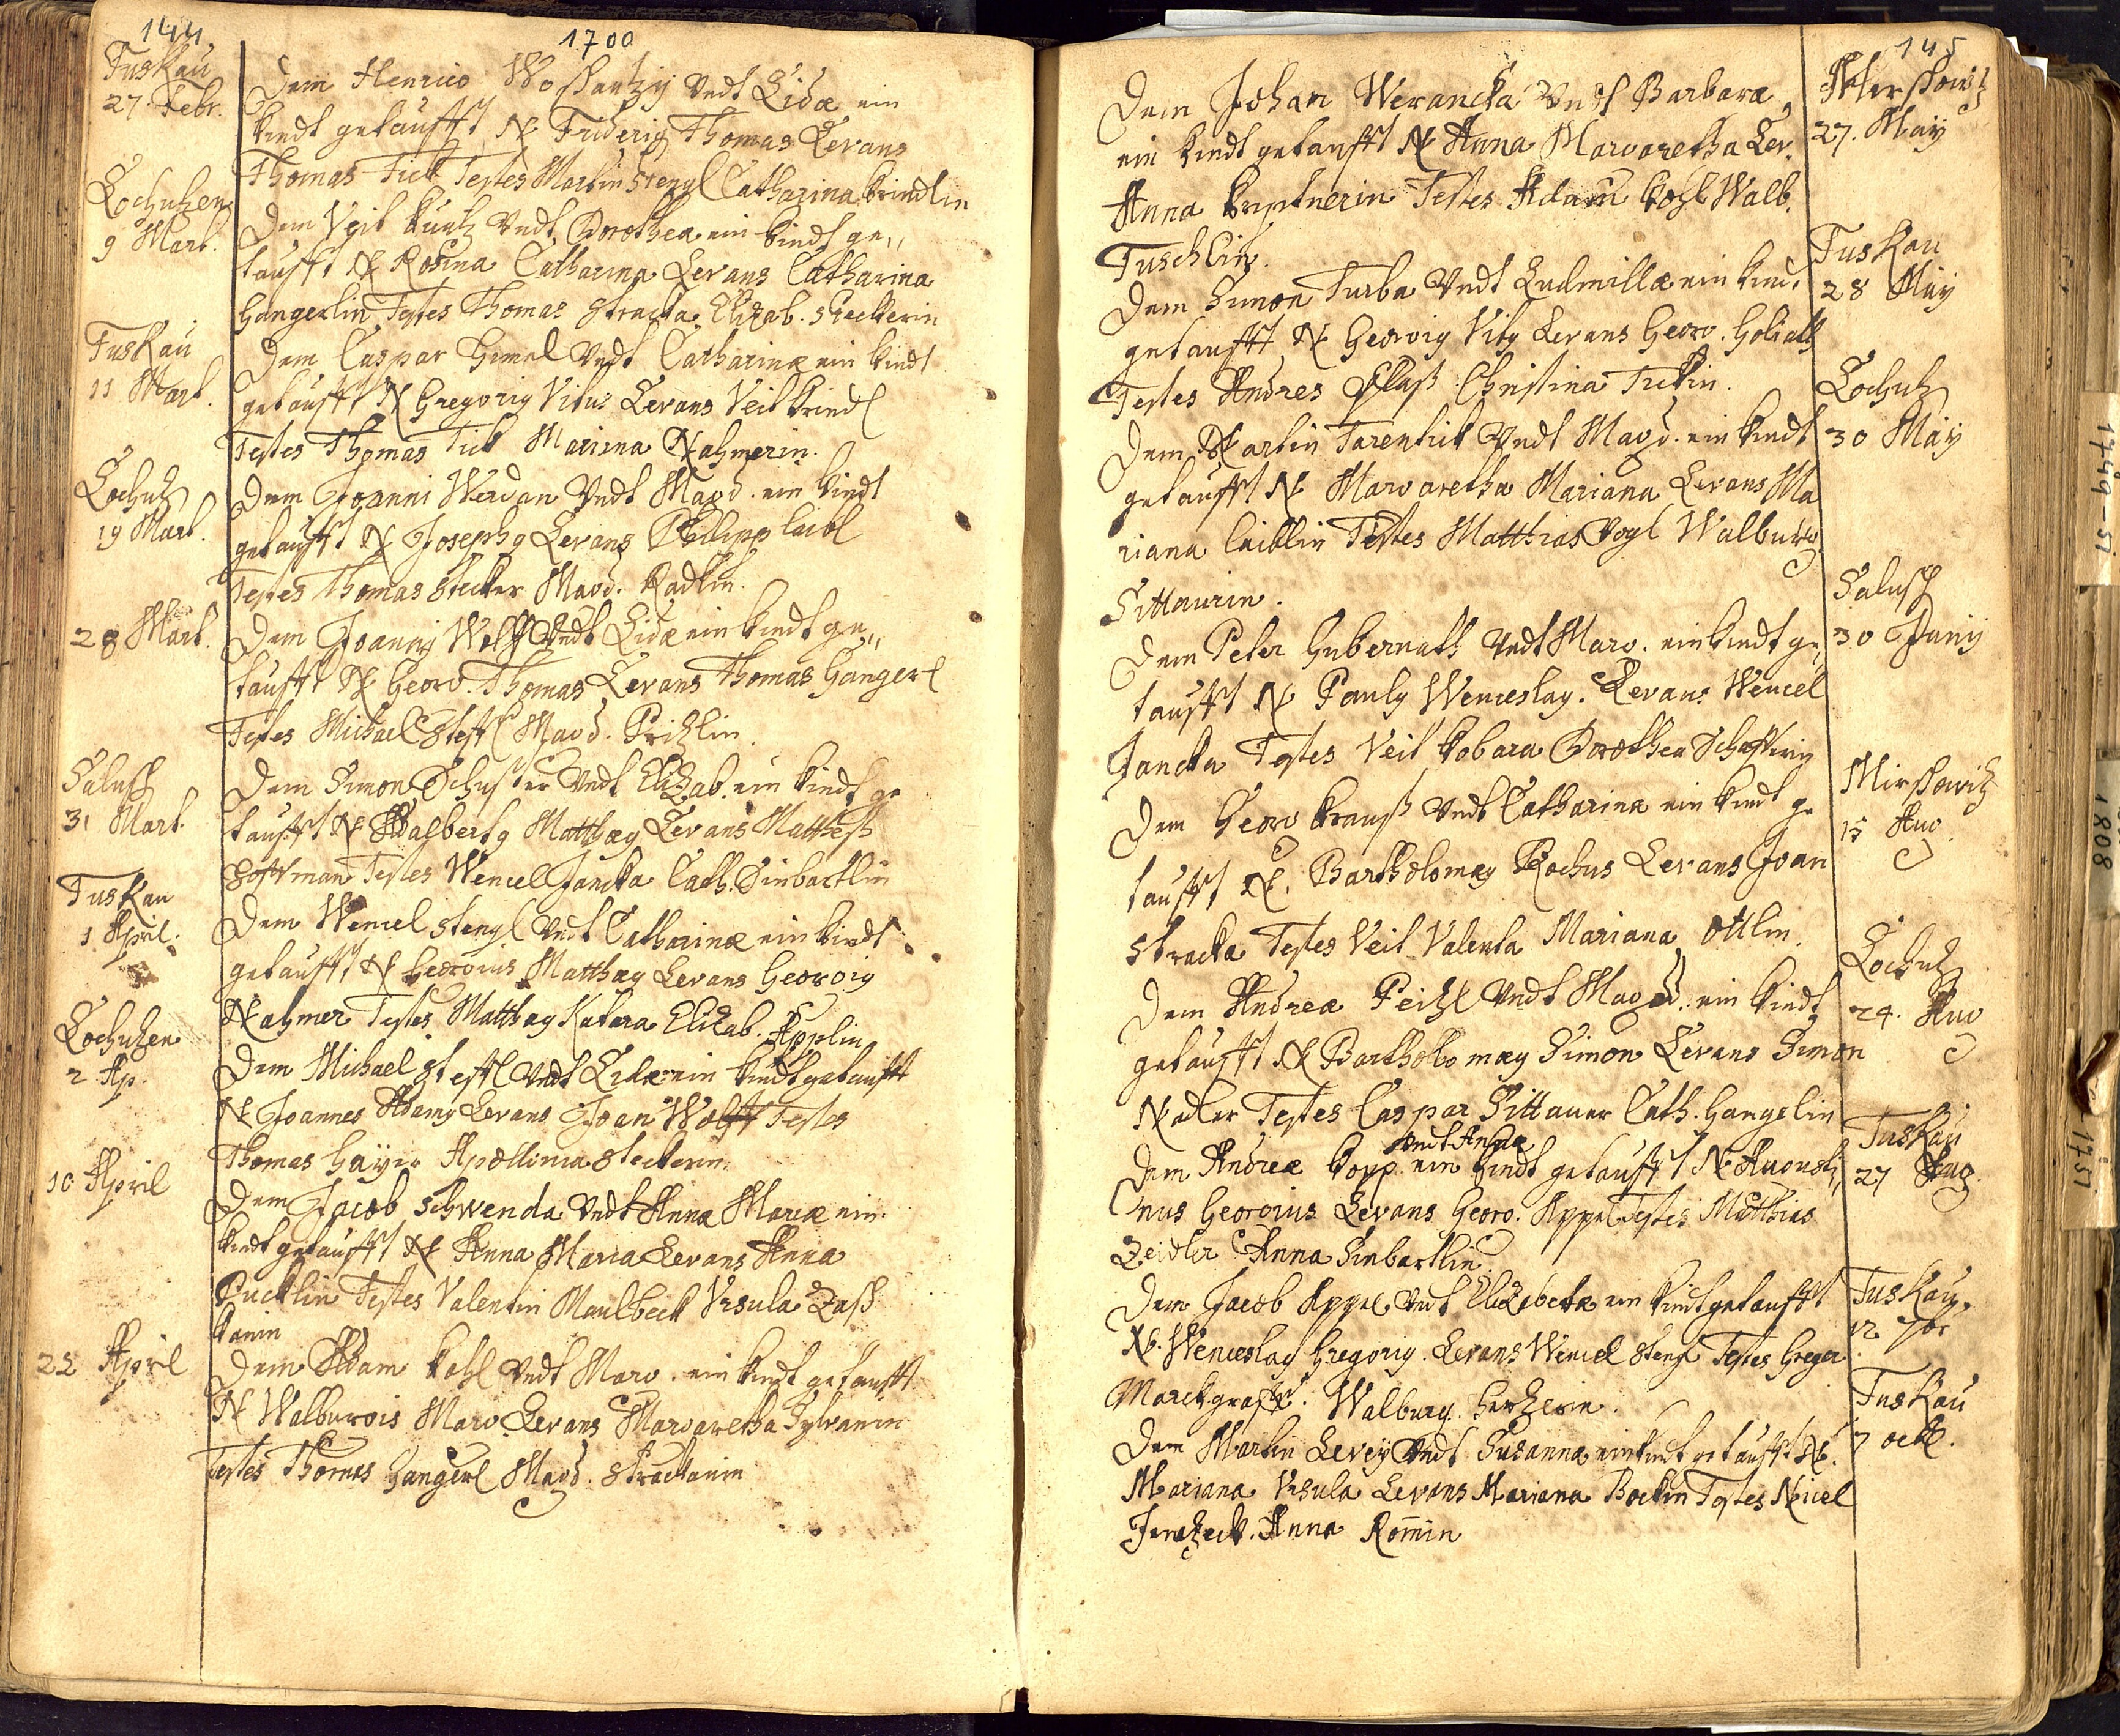 144
1700
Tuskau
27. Febr.
Dem Henrico Woschantzÿ Vndt Lidæ ein
kindt getaufft N Friderig Thomas Levans
Thomas Tick Testes Martin Stengl Catharina Brindlin
Lochutzen
9 Mart.
Dem Veit kuntz Vndt Dorothea ein kindt ge„
taufft N Rosina Catharina Levans Catharina
Hangerlin Testes Thomas Stracka Elizab. Steckerin
Tuskau
11 Mart.
Dem Caspar Himel Vndt Catharinæ ein kindt
getaufft N Gregorig Vitus Levans Veit Brindl
Testes Thomas Tick Mariana Nahmerin.
Lochutz
19 Mart.
Dem Joanni Werdan Vndt Magd. ein kindt
getaufft N Josephg Levans Phillipp laibl
Testes Thomas Stecker Magd. Radlin.
28 Mart.
Dem Joanni Wolff Vndt Lidæ ein kindt ge„
taufft N Georg. Thomas Levans Thomas Hangerl
Testes Michael Steffl Magd. Prizlin
Salusch
31 Mart.
Dem Simon Schuster Vndt Elizab. ein kindt ge
taufft N Adalbertg Matthæg Levans Mattheß
Hoffman Testes Wencel Jancka Cath. Sinbartlin
Tuskau
1 April.
Dem Wencel Stengl Vndt Catharinæ ein kindt
getaufft N Georgius Matthæg Levans Georgig
Nahmer Testes Matthæg Katara Elizab. Applin
Lochutzen
2 Ap.
Dem Michael Steffl Vndt Lidæ ein kindt getaufft
N Joannes Adamg Levans Joan Wolff Testes
Thomas Haÿer Apollinia Steckerin.
10 April
Dem Jacob Schwenda Vndt Anna Mariæ ein
kindt getaufft N Anna Maria Levans Anna
Pucklin Testes Valentin Maulbeck Vrsula Zasch
kanin
22 April
Dem Adam kohl Vndt Marg. ein kindt getaufft
N Walburgis Marg. Levans Margaretha Sylvanin
Testes Thomas Hangerl Magd. Strackanin
145
Dem Johan Werancka Vndt Barbaræ
Petershowitz
27. Maÿ
ein kindt getaufft N Anna Margaretha Lev.
Anna Testes Adam kohl Walb.
Tuschlin.
Tuskau
28 Maÿ
Dem Simon Turba Vndt Ludmillæ ein kindt
getaufft N Georgig Vitg Levans Georg. Goliath
Testes Andres Christina Tickin.
Lochutz
30 Maÿ
Dem Martin Tarentick Vndt Magd. ein kindt
getaufft N Margaretha Mariana Levans Ma
riana laiblin Testes Matthias Vogl Walburg
Sittaurin.
Salusch
30 Junÿ
Dem Peter Gubernath Vndt Marg. ein kindt ge„
taufft N Paulg Wenceslag. Levans Wencel
Jancka Testes Veit kobara Dorothea Schafferin
Mirschowitz
15 Aug
Dem Georg krauß Vndt Catharinæ ein kindt ge
taufft N. Bartholomæg Rochus Levans Joan
Stracka Testes Veit Valenta Mariana Ottlin.
Lochutz
24. Aug
Dem Andreæ Peitzl Vndt Magd. ein kindt
getaufft N Bartholomæg Simon Levans Simon
Nadler Testes Caspar Sittauer Cath. Hangelin
Tuskau
27 Aug.
Vndt Annæ
Dem Andreæ kopp. ein kindt getaufft N Augusti„
nus Georgius Levans Georg. Appel Testes Matthias
Zeidler Anna Sinbartlin.
Tuskau.
12 7br
Dem Jacob Appel Vndt Elizabetæ ein kindt getaufft
N. Wenceslag Gregorig. Levans Wencel Stengl Testes Greger
Marckgraff. Walburg. Hertzerin.
Tuskau
7 octb.
Dem Martin Leveÿ Vndt Susannæ ein kindt getaufft N.
Mariana Vrsula Levans Mariana Bockin Testes Nicel
Anna Rom̄in
1749-51
1808
1751